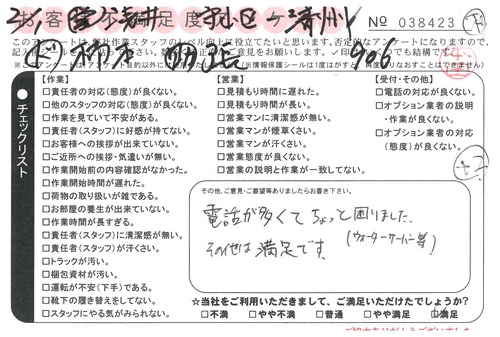 № 038423
チェックリスト
【作業】
□責任者の対応(態度)が良くない。
□他のスタッフの対応(態度)が良くない。
□作業を見ていて不安がある。
□責任者(スタッフ)に好感が持てない。
□お客様への挨拶が出来ていない。
□ご近所への挨拶・気遣いが無い。
□作業開始前の内容確認がなかった。
□作業開始時間が遅れた。
□荷物の取り扱いが雑である。
□お部屋の養生が出来ていない。
□作業時間が長すぎる。
□責任者(スタッフ)に清潔感が無い。
□責任者(スタッフ)が汗くさい。
□トラックが汚い。
□梱包資材が汚い。
□運転が不安(下手)である。
□靴下の履き替えをしてない。
□スタッフにやる気がみられない。
【営業】
□見積もり時間に遅れた。
□見積もり時間が長い。
□営業マンに清潔感が無い。
□営業マンが煙草くさい。
□営業マンが汗くさい。
□営業態度が良くない。
□営業の説明と作業が一致してない。
【受付・その他】
□電話の対応が良くない。
□オプション業者の説明
・作業が良くない。
□オプション業者の対応
(態度)が良くない。
その他、ご意見・ご要望等ありましたらお書き下さい。
電話が多くてちょっと困りました。
(ウォーターサーバー等)
その他は満足です。
☆当社をご利用いただきまして、ご満足いただけたでしょうか?
□不満 □やや不満 □普通 □やや満足 □満足